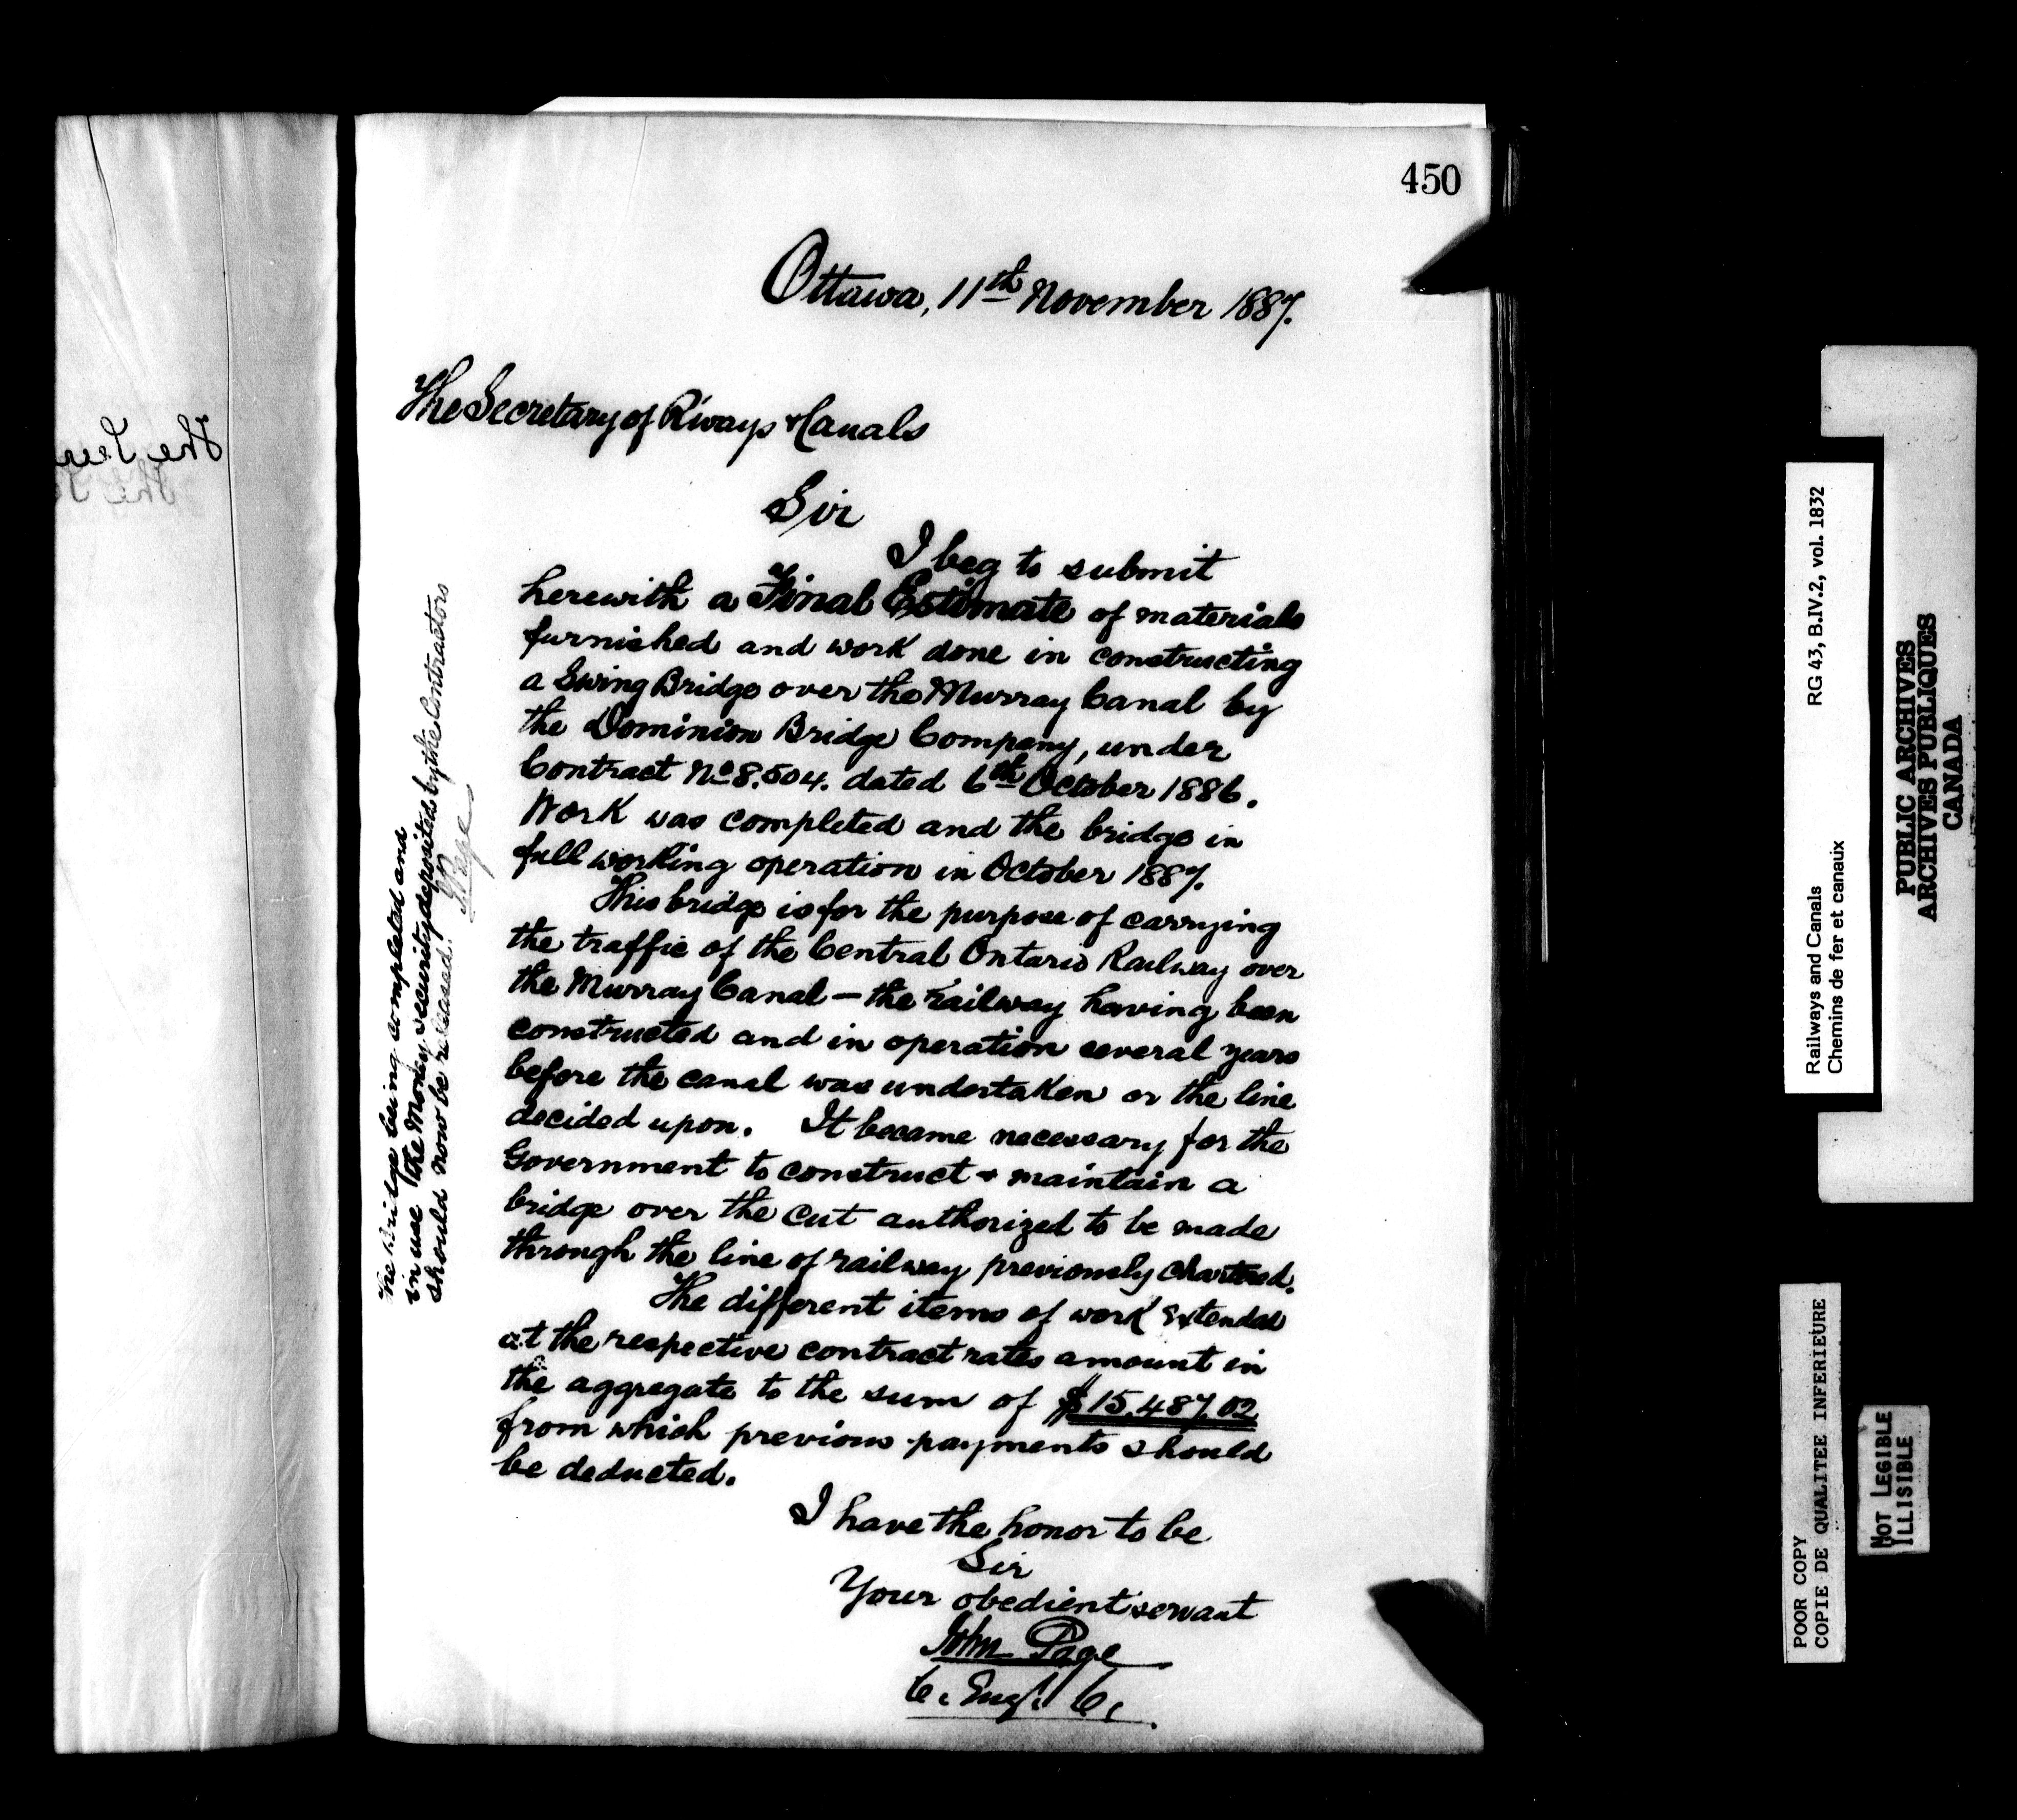 450
Ottawa, 11th November 1887.
The Secretary of R'ways & Canals
Sir
I beg to submit
herewith a Final Estimate of materials
furnished and work done in constructing
a Swing Bridge over the Murray Canal by
the Dominion Bridge Company, under
Contract No 8,504. dated 6th October 1886.
Work was completed and the bridge in
full working operation in October 1887.
This bridge is for the purpose of carrying
the traffic of the Central Ontario Railway over
the Murray Canal — the railway having been
constructed and in operation several years
before the canal was undertaken or the line
decided upon. It became necessary for the
Government to construct & maintain a
bridge over the cut authorized to be made
through the line of railway previously chartered.
The different items of work extended
at the respective contract rates amount in
the aggregate to the sum of $15,487.02
from which previous payments should
be deducted.
I have the honor to be
Sir
Your obedient servant
John Page
C. Eng. C.
The bridge being completed and
in use the money security deposited by the Contractors
should now be released.
J Page
The
The
Railways and Canals RG 43, B.IV.2, vol. 1832
Chemins de fer et canaux
PUBLIC ARCHIVES
ARCHIVES PUBLIQUES
CANADA
POOR COPY
COPIE DE QUALITEE INFERIEURE
NOT LEGIBLE
ILLISIBLE